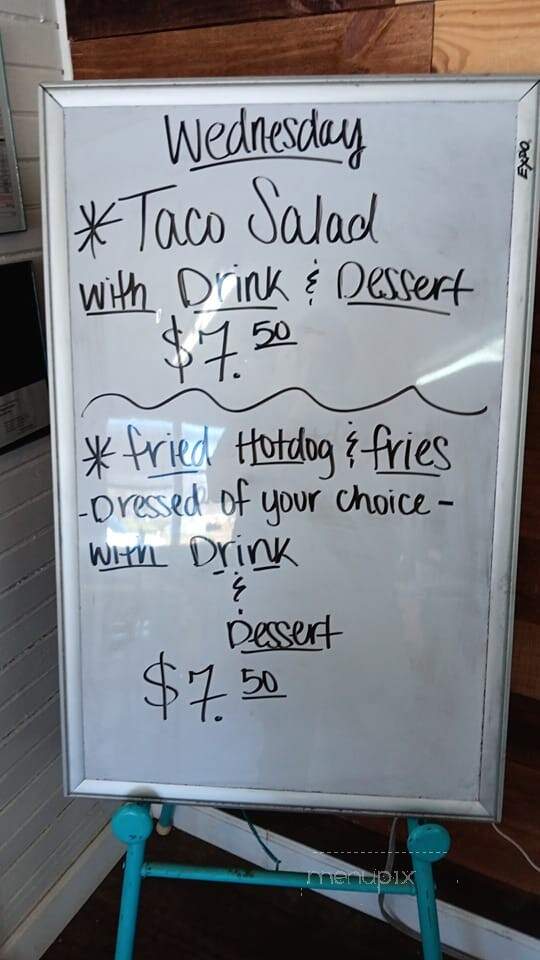 Wednesday
EXPO
* Taco Salad
with Drink & Dessert
$7.50
* fried Hotdog & fries
-Dressed of your choice-
with Drink
&
Dessert
$7.50
menupix